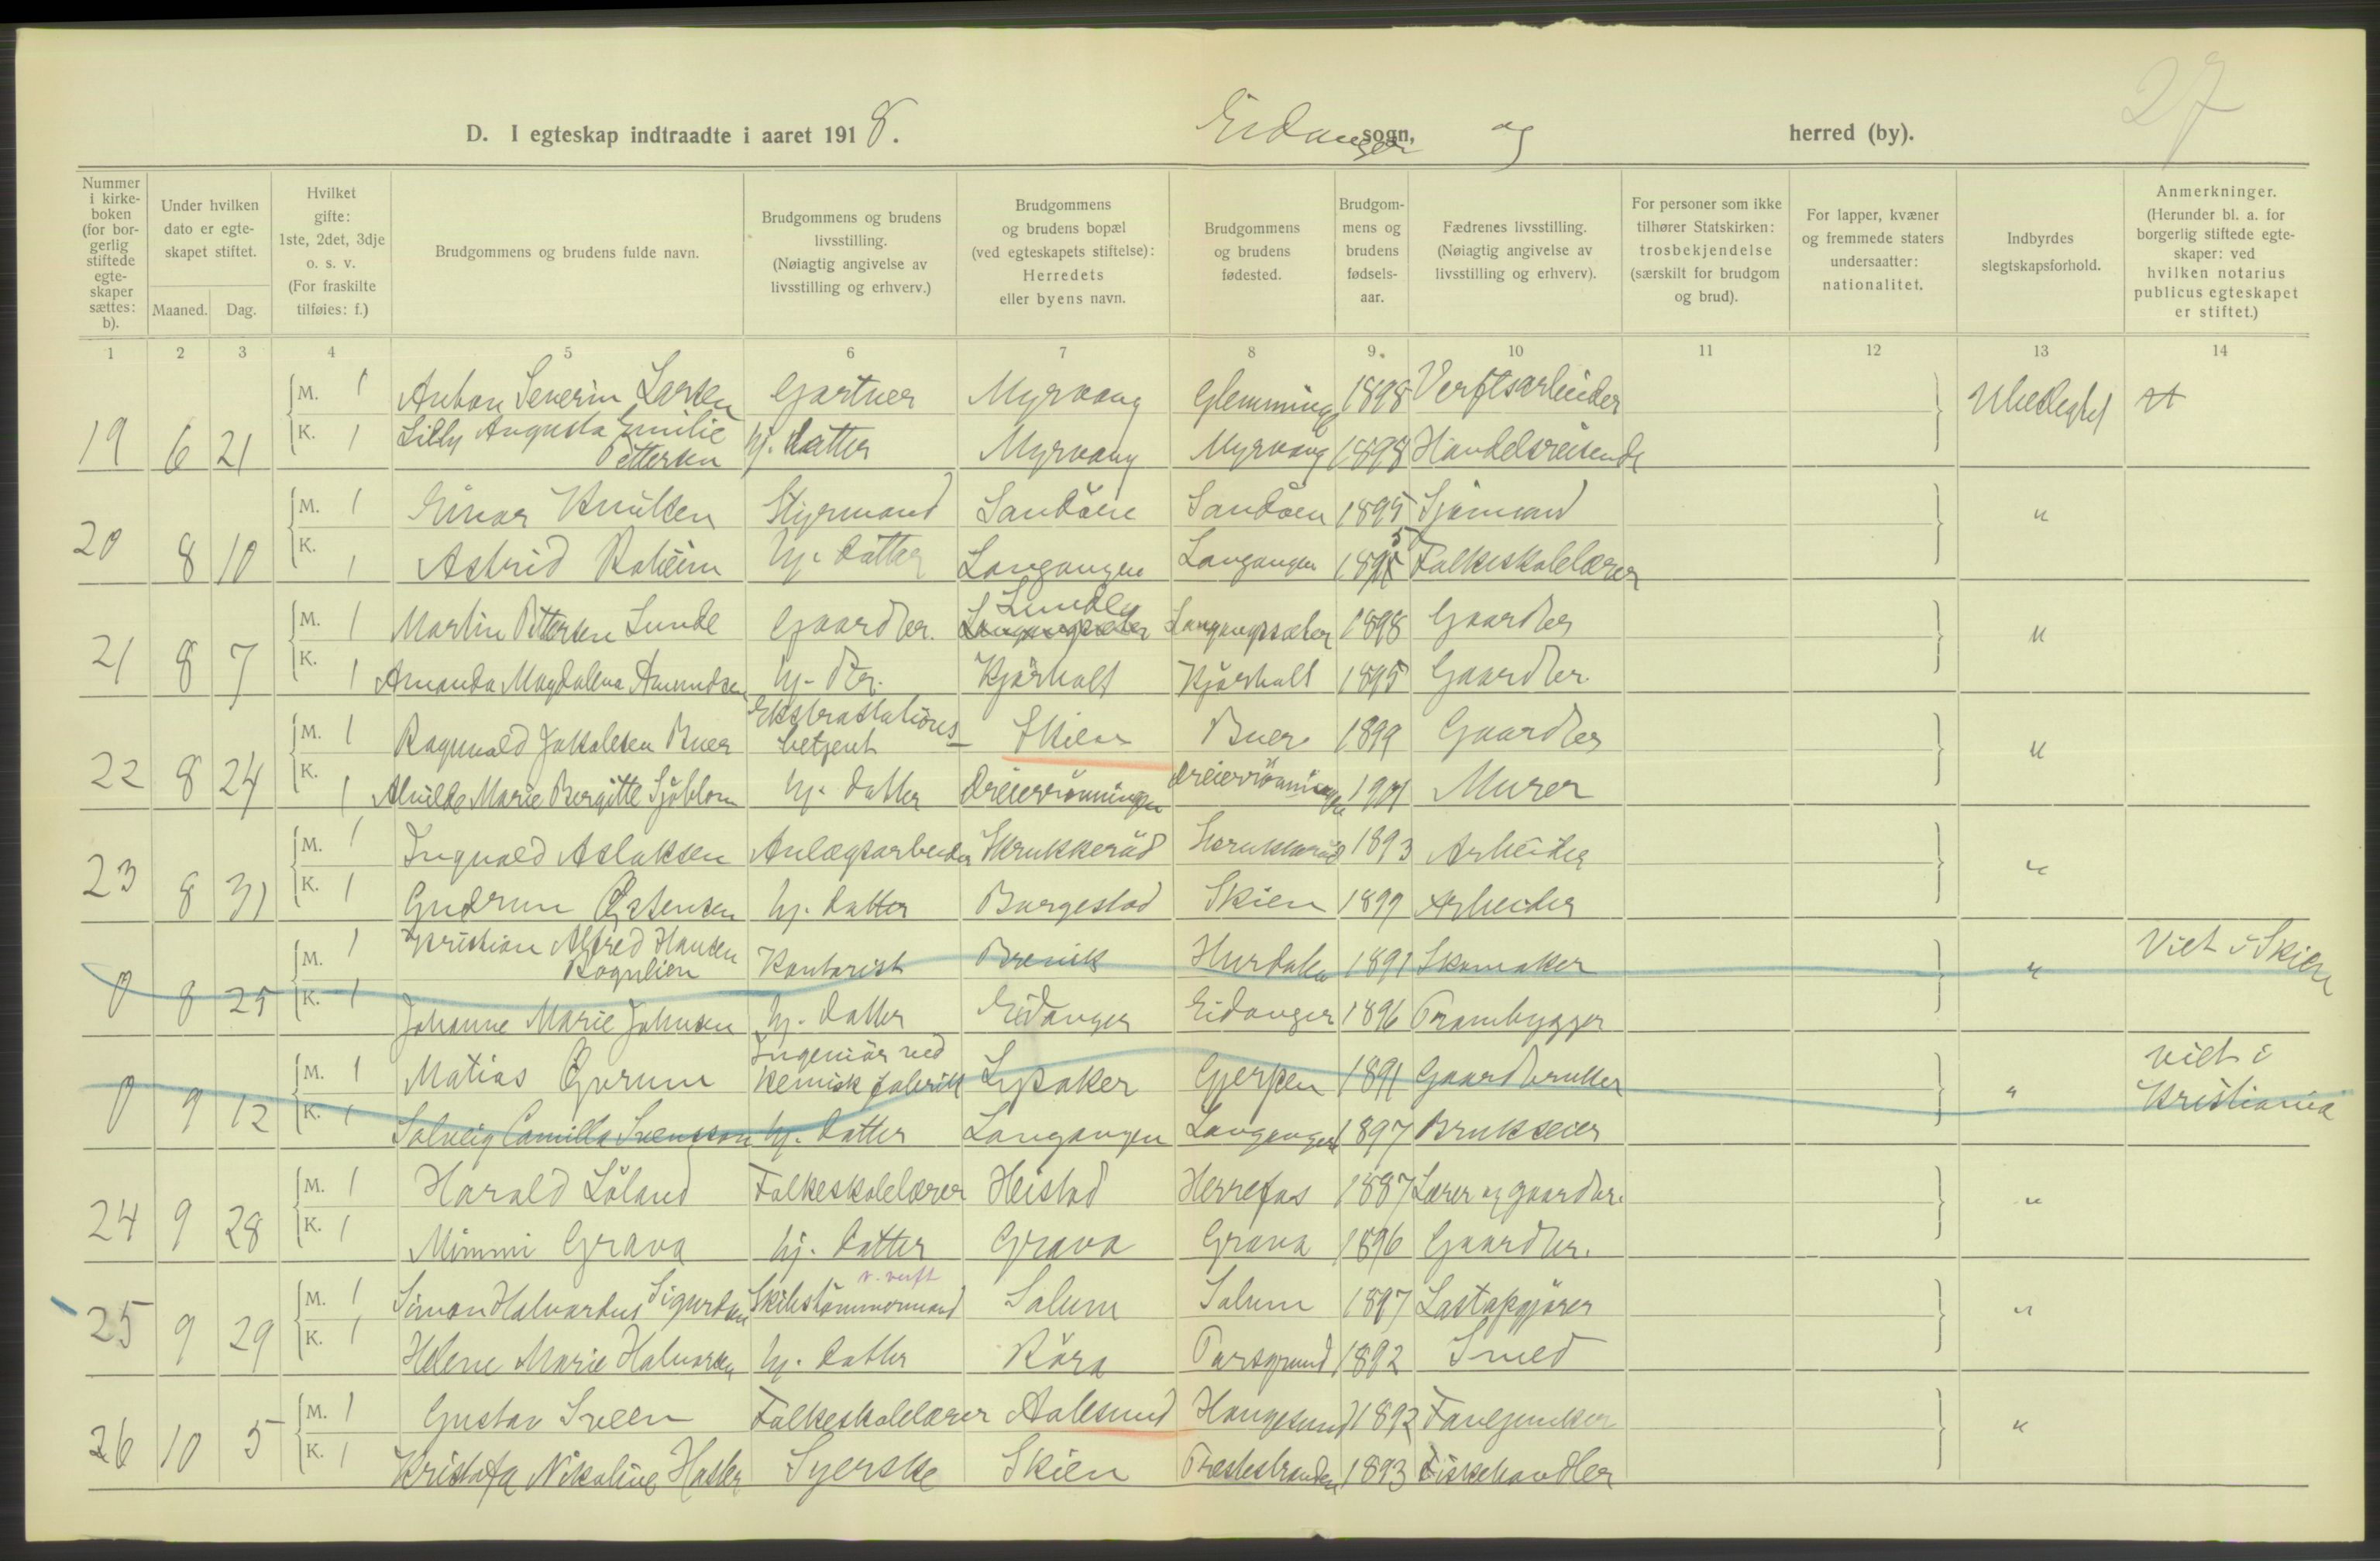 27
D. I egteskap indtraadte i aaret 1918. Eidanger sogn, og herred (by).
Nummer i kirkeboken (for borgerlig stiftede egteskaper sættes: b).
Under hvilken dato er egteskapet stiftet.
Maaned. Dag.
Hvilket gifte: 1ste, 2det, 3dje o. s. v. (For fraskilte tilføies: f.)
Brudgommens og brudens fulde navn.
Brudgommens og brudens livsstilling. (Nøiagtig angivelse av livsstilling og erhverv.)
Brudgommens og brudens bopæl (ved egteskapets stiftelse): Herredets eller byens navn.
Brudgommens og brudens fødested.
Brudgommens og brudens fødselsaar.
Fædrenes livsstilling. (Nøiagtig angivelse av livsstilling og erhverv).
For personer som ikke tilhører Statskirken: trosbekjendelse (særskilt for brudgom og brud).
For lapper, kvæner og fremmede staters undersaatter: nationalitet.
Indbyrdes slegtskapsforhold.
Anmerkninger. (Herunder bl. a. for borgerlig stiftede egteskaper: ved hvilken notarius publicus egteskapet er stiftet.)
1 2 3 4 5 6 7 8 9. 10 11 12 13 14
M. 1 Anton Severin Larsen Gartner Myrvang Glemminge 1898 Verftsarbeider Ubeslegtet
19 6 21 K. 1 Lilly Augusta Emilie Pettersen hj. datter Myrvang Myrvang 1898 Handelsreisende
M. 1 Einar Knutsen Styrmand Sandöen Sandöen 1895 Sjömand "
20 8 10 K. 1 Astrid Roheim hj. datter Langangen Langangen 1895 Folkeskolelærer
M. 1 Martin Pettersen Lunde Gaardbr. Lunde Langangssæter 1898 Gaardbr "
21 8 7 K. 1 Amanda Magdalena Amundsen hj. dtr. Kjørholt Kjørholt 1895 Gaardbr.
M. 1 Ragnvald Jakobsen Buer Ekstrastationsbetjent Skien Buer 1899 Gaardbr "
22 8 24 K. 1 Alvilde Marie Bergitte Sjöblom hj. datter Dreierrönningen Dreierrönningen 1901 Murer
M. 1 Ingvald Aslaksen Anlægsarbeider Skrukkeröd Skrukkeröd 1893 Arbeider "
23 8 31 K. 1 Gudrun Østensen hj. datter Borgestad Skien 1899 Arbeider
M. 1 Kristian Alfred Hansen Rognlien Kontorist Brevik Hurdalen 1891 Skomaker " Viet i Skien
0 8 25 K. 1 Johanne Marie Johnsen hj. datter Eidanger Eidanger 1896 Prambygger
M. 1 Matias Gjerum Ingeniör ved kemisk fabrik Lysaker Gjerpen 1891 Gaardbruker " viet i Kristiania
0 9 12 K. 1 Solveig Camilla Svensson hj. datter Langangen Langangen 1897 Brukseier
M. 1 Harald Löland Folkeskolelærer Heistad Herrefos 1887 Lærer og gaardbr. "
24 9 28 K. 1 Mimmi Grava hj. datter Grava Grava 1896 Gaardbr.
M. 1 Simon Halvardus Sigurdsen Skibstömmermand v. verft Solum Solum 1897 "
25 9 29 K. 1 Helene Marie Halvorsen hj. datter Röra Porsgrund 1892 Smed
M. 1 Gustav Sveen Folkeskolelærer Aalesund Haugesund 1892 Fanejunker "
26 10 5 K. 1 Kristofa Nikoline Hasler Syerske Skien Prestestranden 1893 Fiskehandler